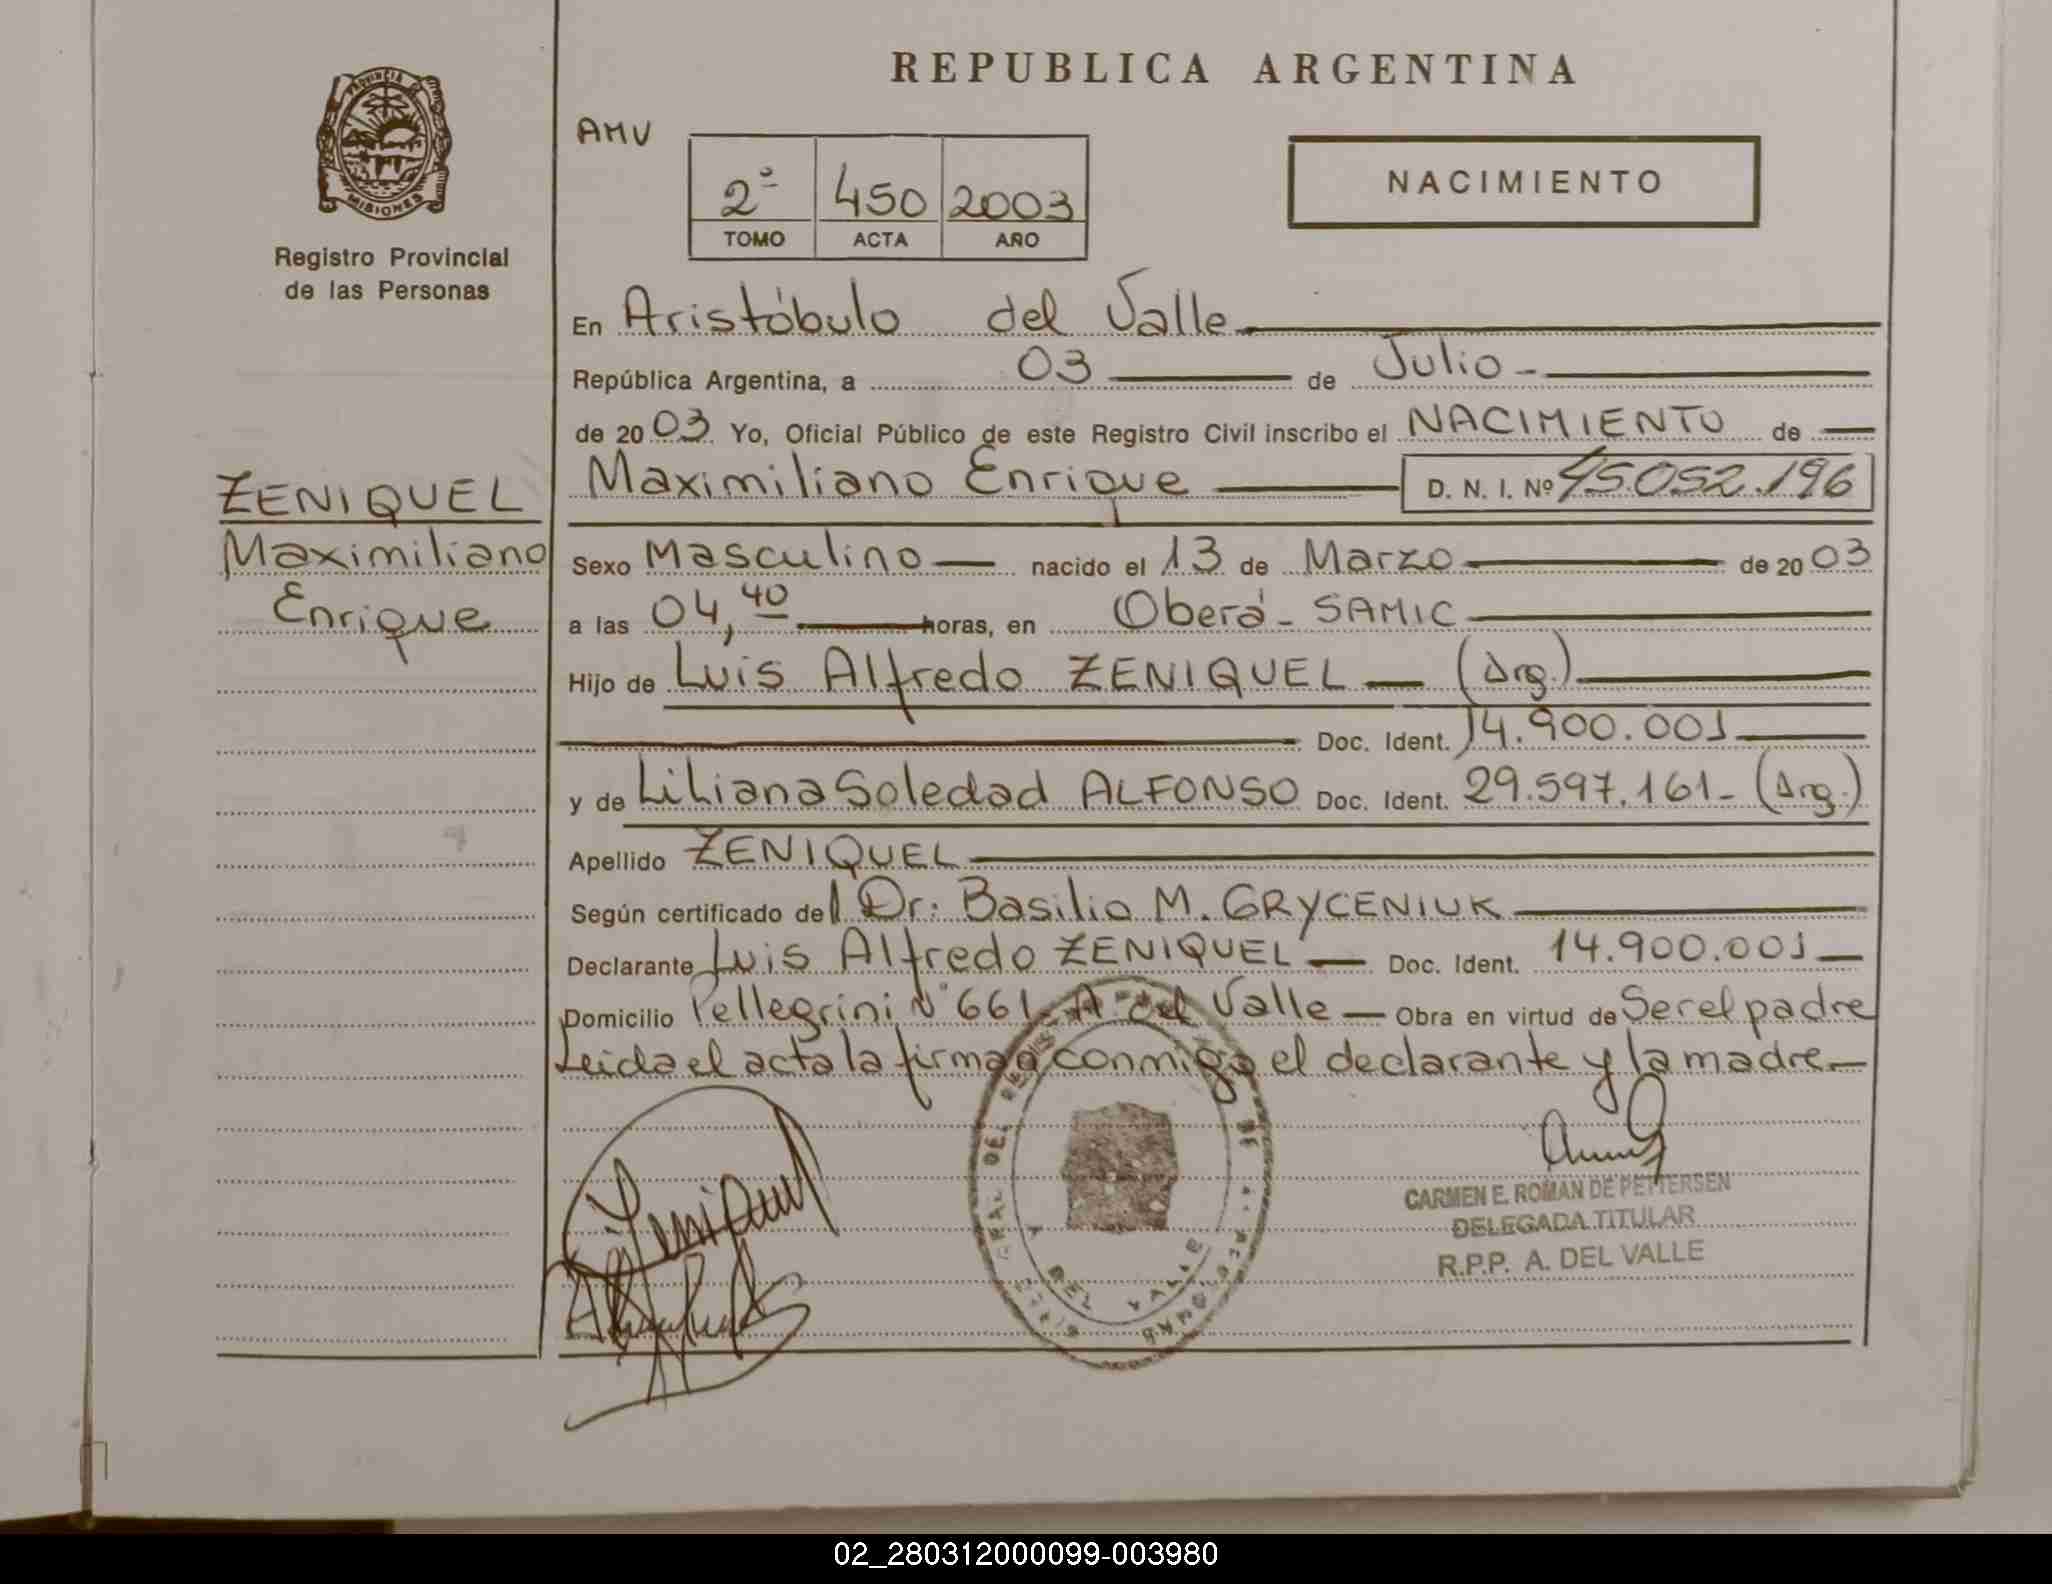 REPUBLICA ARGENTINA
PROVINCIA DE
MISIONES
Registro Provincial
de las Personas
AMV
2º 450 2003
TOMO ACTA AÑO
NACIMIENTO
En Aristóbulo del Valle
República Argentina, a 03 de Julio
de 2003 Yo, Oficial Público de este Registro Civil inscribo el NACIMIENTO de
Maximiliano Enrique D. N. I. Nº 45.052.196
ZENIQUEL
Maximiliano
Enrique
Sexo Masculino nacido el 13 de Marzo de 2003
a las 04,40 horas, en Oberá - SAMIC
Hijo de Luis Alfredo ZENIQUEL (Arg.)
Doc. Ident. 14.900.001
y de Liliana Soledad ALFONSO Doc. Ident. 29.597.161 - (Arg.)
Apellido ZENIQUEL
Según certificado del Dr: Basilio M. GRYCENIUK
Declarante Luis Alfredo ZENIQUEL Doc. Ident. 14.900.001
Domicilio Pellegrini Nº 661 - A. del Valle Obra en virtud de Ser el padre
Leida el acta la firman conmigo el declarante y la madre
Zeniquel
DEL VALLE
CARMEN E. ROMAN DE PETTERSEN
DELEGADA TITULAR
R.P.P. A. DEL VALLE
02_280312000099-003980